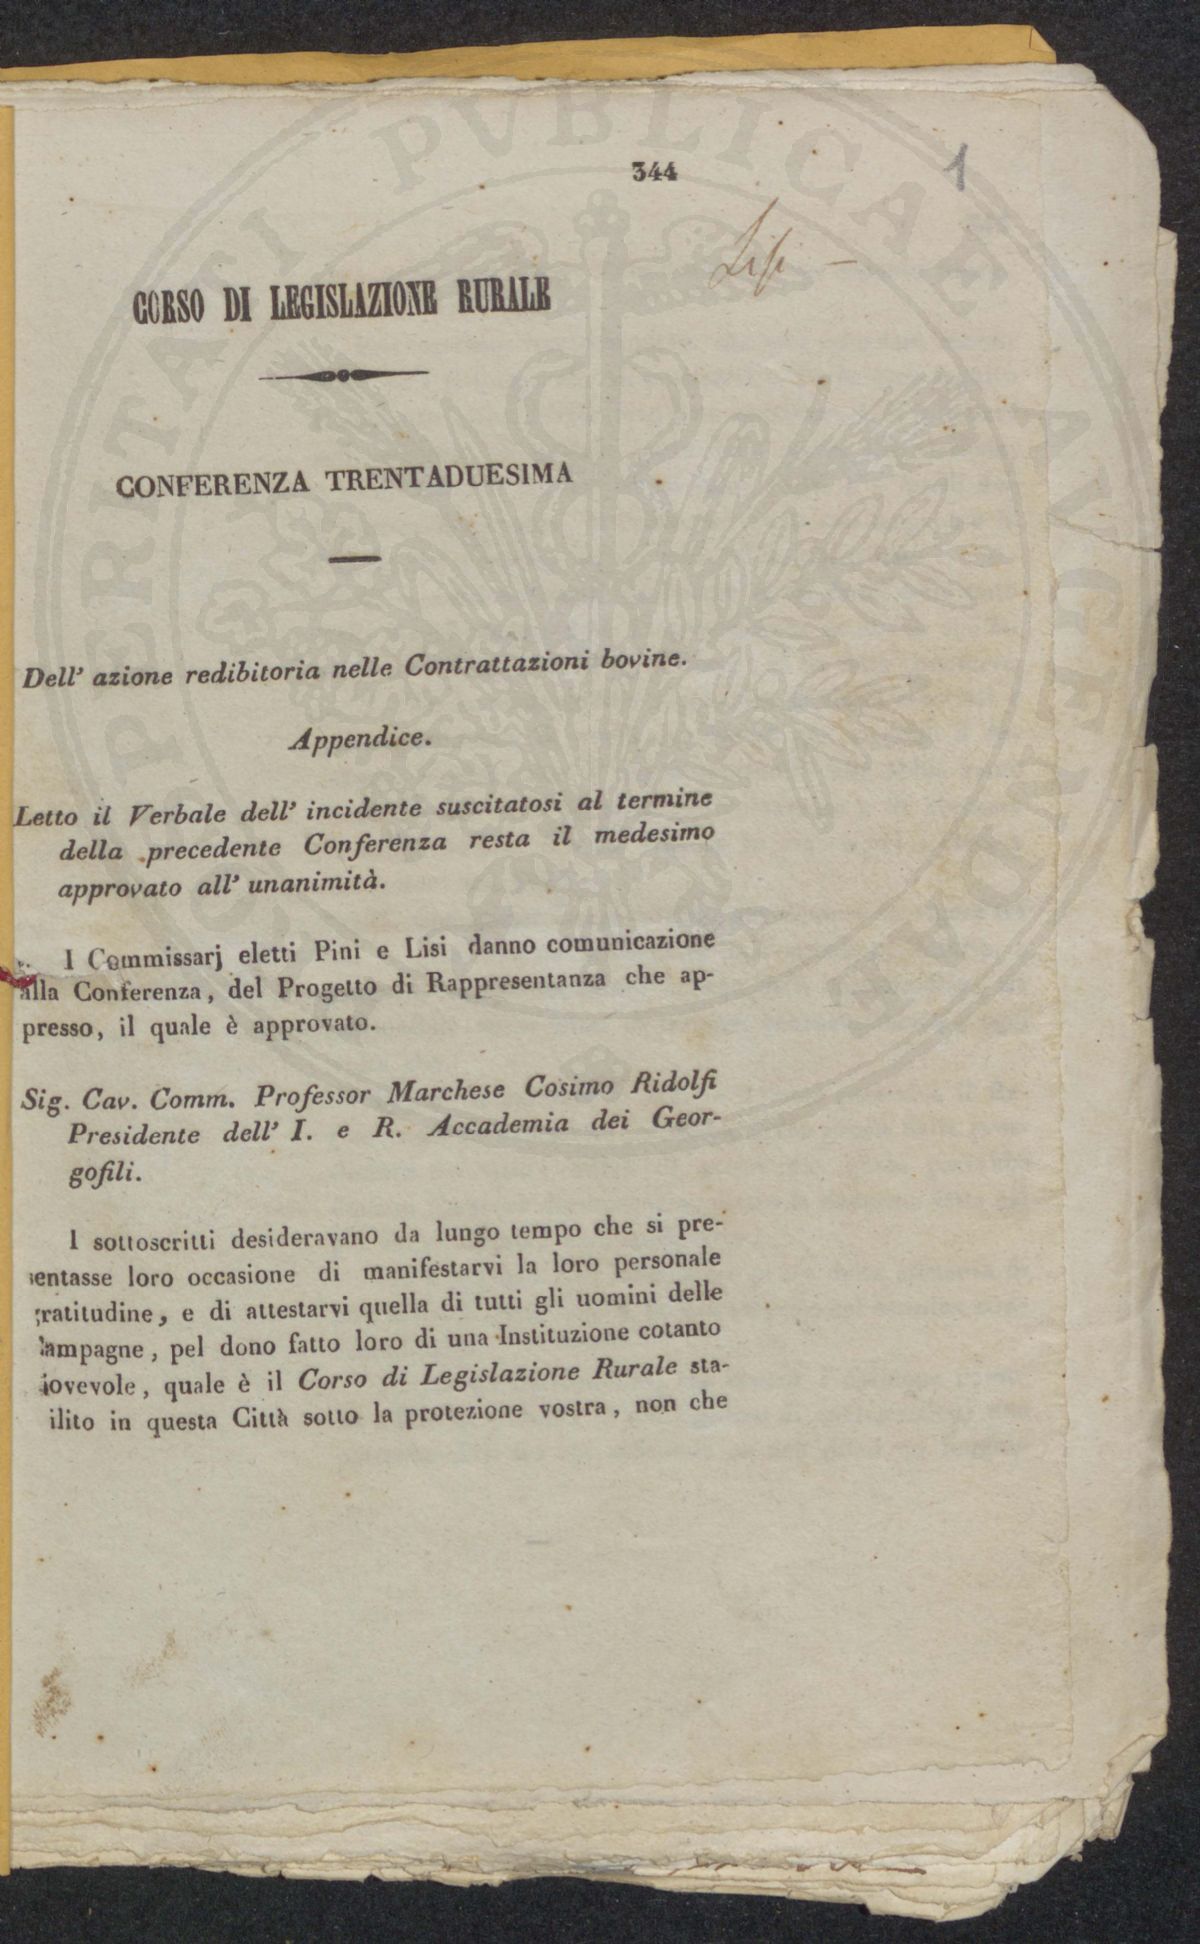 344
1
Lisi –
CORSO DI LEGISLAZIONE RURALE
CONFERENZA TRENTADUESIMA
Dell' azione redibitoria nelle Contrattazioni bovine.
Appendice.
Letto il Verbale dell' incidente suscitatosi al termine
della precedente Conferenza resta il medesimo
approvato all' unanimità.
I Commissarj eletti Pini e Lisi danno comunicazione
alla Conferenza, del Progetto di Rappresentanza che ap-
presso, il quale è approvato.
Sig. Cav. Comm. Professor Marchese Cosimo Ridolfi
Presidente dell' I. e R. Accademia dei Geor-
gofili.
I sottoscritti desideravano da lungo tempo che si pre-
sentasse loro occasione di manifestarvi la loro personale
gratitudine, e di attestarvi quella di tutti gli uomini delle
Campagne, pel dono fatto loro di una Instituzione cotanto
iovevole, quale è il Corso di Legislazione Rurale sta-
ilito in questa Città sotto la protezione vostra, non che
PROSPERITATI PVBLICAE AVGENDAE